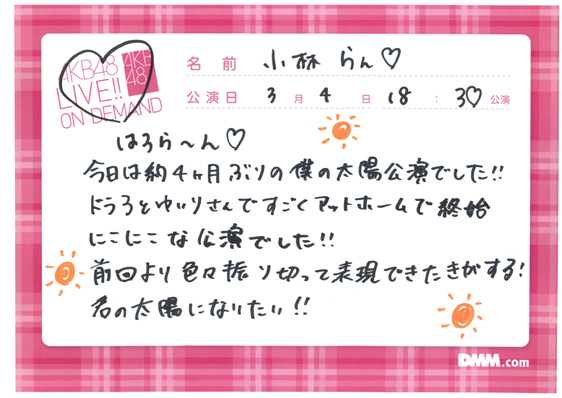 AKB48
LIVE!!
ON DEMAND
AKB
48
名前 小林 らん♡
公演日 3月4日 18:30公演
はろら〜ん♡
今日は約4ヶ月ぶりの僕の太陽公演でした!!
ドラ3とゆいりさんですごくアットホームで終始
にこにこな公演でした!!
前回より色々振り切って表現できたきがする!
君の太陽になりたい!!
DMM.com